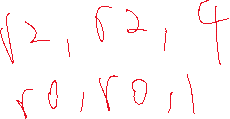 r2, r2, 4
r0, r0, 1